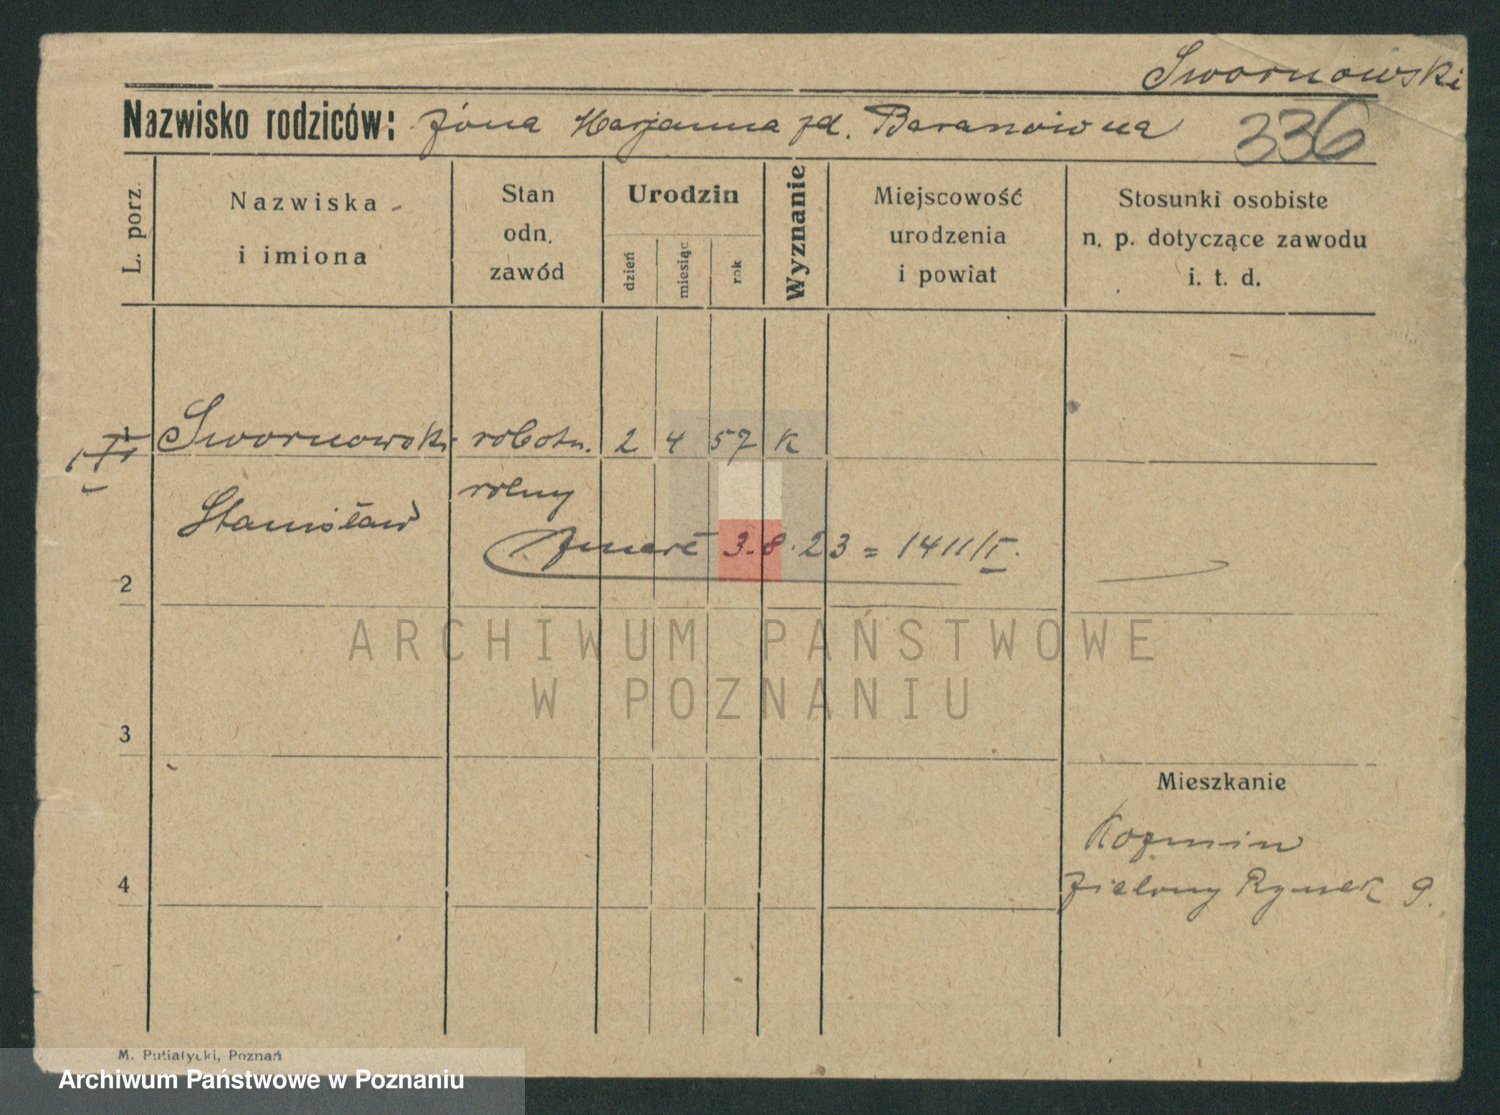 Swornowski
Nazwisko rodziców: żona Marjanna zd. Baranowowna
336
L. porz.
Nazwiska
i imiona
Stan
odn.
zawód
Urodzin
dzień
miesiąc
rok
Wyznanie
Miejscowość
urodzenia
i powiat
Stosunki osobiste
n. p. dotyczące zawodu
i. t. d.
Swornowski robotn. 2 4 57 K
rolny
Stanisław
Zmarł 3.8.23 = 1411/I.
2
ARCHIWUM PAŃSTWOWE
W POZNANIU
3
Mieszkanie
Kozmin
4
Zielony Rynek 9.
M. Putiatycki, Poznań
Archiwum Państwowe w Poznaniu